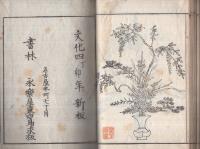 文化四丁卯年新板
名古屋本町七丁目
書林
永樂屋東四郎板